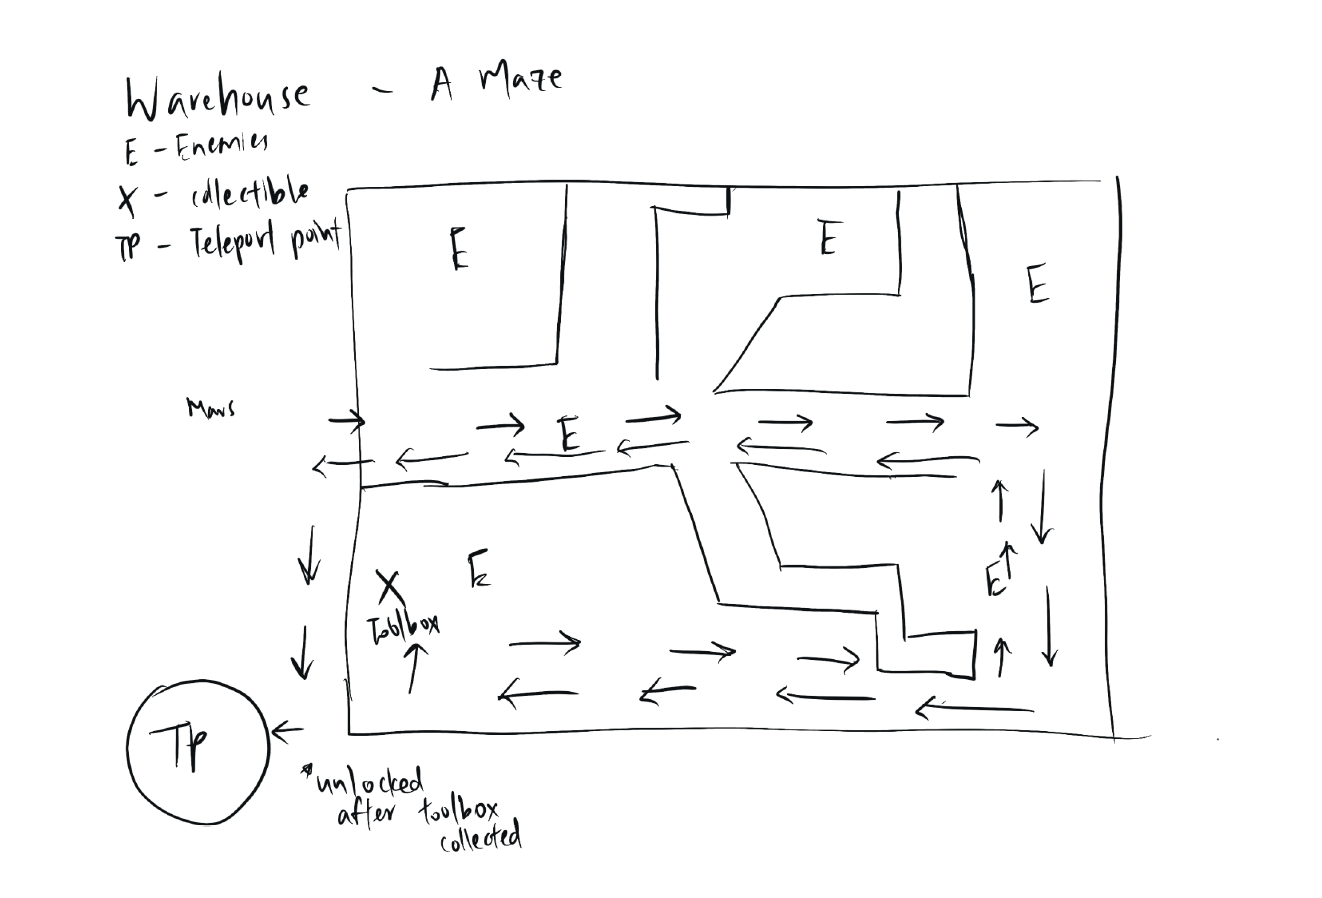 Warehouse - A Maze
E - Enemies
X - collectible
TP - Teleport point
E
E
E
Mars
E
E
X
Toolbox
E
TP
*unlocked
after toolbox
collected